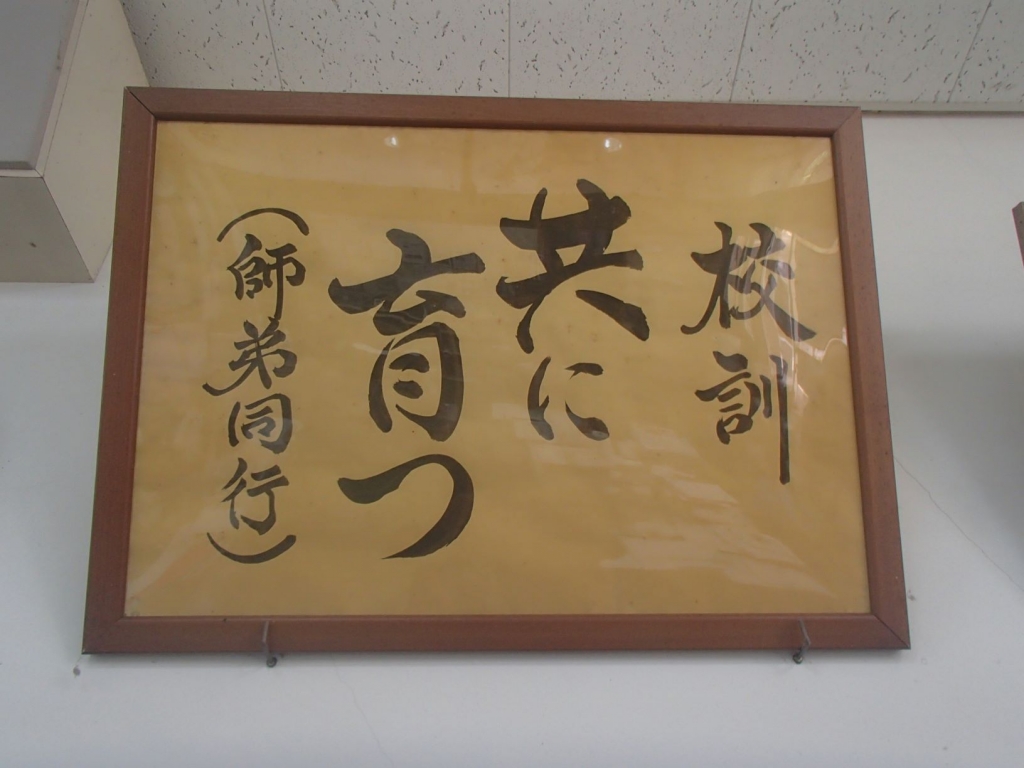 校訓
共に
育つ
（師弟同行）